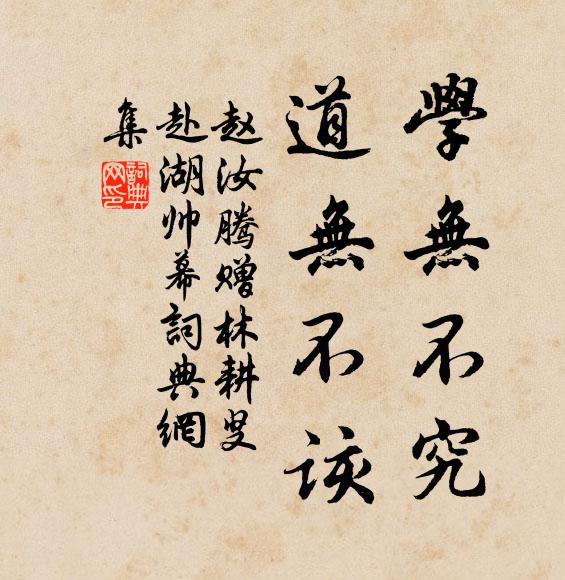 學無不究
道無不該
赵汝腾赠林耕叟
赴湖帅幕詞典網
集
詞典
网印